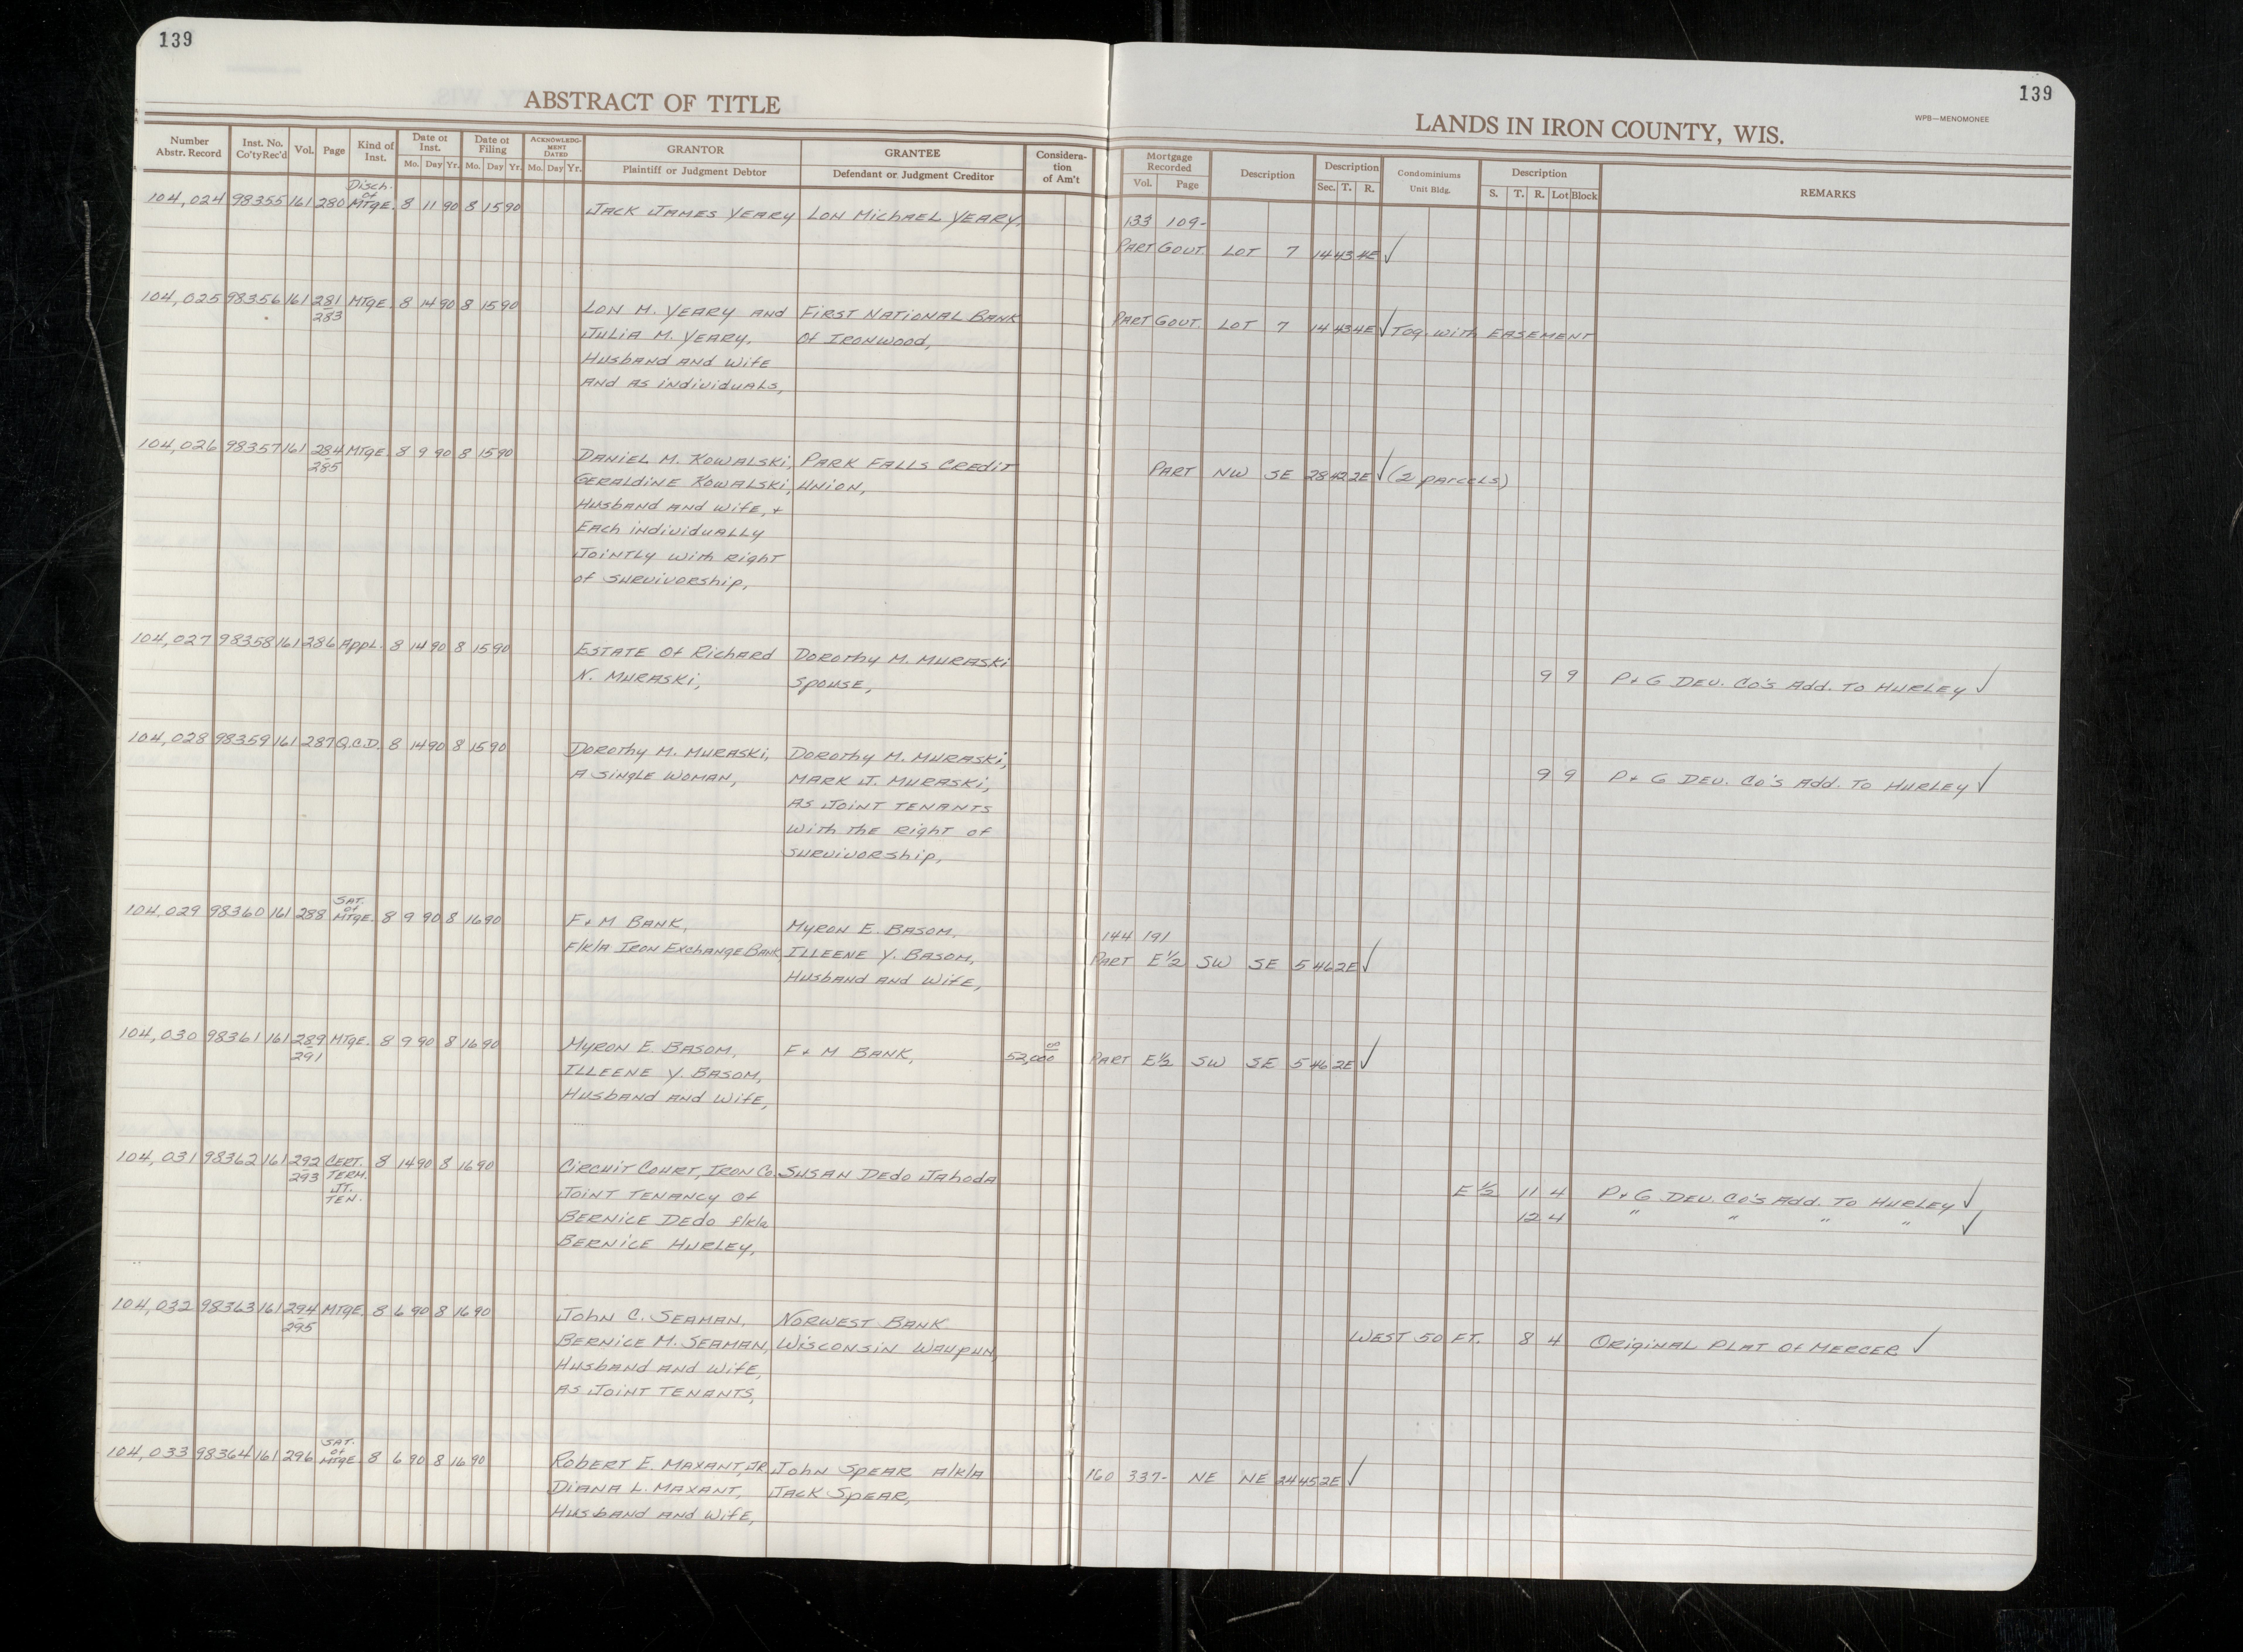 139
139
ABSTRACT OF TITLE
LANDS IN IRON COUNTY, WIS.
WPB—MENOMONEE
Number Abstr. Record
Inst. No. Co'ty Rec'd
Vol.
Page
Kind of Inst.
Date of Inst.
Mo. Day Yr.
Date of Filing
Mo. Day Yr.
ACKNOWLEDGMENT DATED
Mo. Day Yr.
GRANTOR
Plaintiff or Judgment Debtor
GRANTEE
Defendant or Judgment Creditor
Consideration of Am't
Mortgage Recorded
Vol. Page
Description
Description
Sec. T. R.
Condominiums
Unit Bldg.
Description
S. T. R. Lot Block
REMARKS
104,024 98355 161 280 Disch. of MTGE. 8 11 90 8 15 90 JACK JAMES YEARY LON MICHAEL YEARY, 133 109-
PART GOVT. LOT 7 14 43 4E ✓
104,025 98356 161 281 MTGE. 8 14 90 8 15 90 LON M. YEARY AND FIRST NATIONAL BANK PART GOVT. LOT 7 14 43 4E ✓ TOG. WITH EASEMENT
283 JULIA M. YEARY, OF IRONWOOD,
HUSBAND AND WIFE
AND AS INDIVIDUALS,
104,026 98357 161 284 MTGE. 8 9 90 8 15 90 DANIEL M. KOWALSKI, PARK FALLS CREDIT PART NW SE 28 42 2E ✓ (2 PARCELS)
285 GERALDINE KOWALSKI, UNION,
HUSBAND AND WIFE, +
EACH INDIVIDUALLY
JOINTLY WITH RIGHT
OF SURVIVORSHIP,
104,027 98358 161 286 APPL. 8 14 90 8 15 90 ESTATE OF RICHARD DOROTHY M. MURASKI
N. MURASKI, SPOUSE, 9 9 P + G DEV. CO'S ADD. TO HURLEY ✓
104,028 98359 161 287 Q.C.D. 8 14 90 8 15 90 DOROTHY M. MURASKI, DOROTHY M. MURASKI,
A SINGLE WOMAN, MARK J. MURASKI, 9 9 P + G DEV. CO'S ADD. TO HURLEY ✓
AS JOINT TENANTS
WITH THE RIGHT OF
SURVIVORSHIP,
104,029 98360 161 288 SAT. of MTGE. 8 9 90 8 16 90 F + M BANK, MYRON E. BASOM, 144 191
F/K/A IRON EXCHANGE BANK ILLEENE Y. BASOM, PART E½ SW SE 5 46 2E ✓
HUSBAND AND WIFE,
104,030 98361 161 289 MTGE. 8 9 90 8 16 90 MYRON E. BASOM, F + M BANK, 52,000 00 PART E½ SW SE 5 46 2E ✓
291 ILLEENE Y. BASOM,
HUSBAND AND WIFE,
104,031 98362 161 292 CERT. 8 14 90 8 16 90 CIRCUIT COURT, IRON CO. SUSAN DEDO JAHODA
293 TERM. JT. TEN. JOINT TENANCY OF E ½ 11 4 P + G DEV. CO'S ADD. TO HURLEY ✓
BERNICE DEDO f/k/a 12 4 " " " " ✓
BERNICE HURLEY,
104,032 98363 161 294 MTGE. 8 6 90 8 16 90 JOHN C. SEAMAN, NORWEST BANK
295 BERNICE M. SEAMAN, WISCONSIN WAUPUN, WEST 50 FT. 8 4 ORIGINAL PLAT OF MERCER ✓
HUSBAND AND WIFE,
AS JOINT TENANTS,
104,033 98364 161 296 SAT. of MTGE. 8 6 90 8 16 90 ROBERT E. MAXANT, JR. JOHN SPEAR A/K/A 160 337- NE NE 24 45 2E ✓
DIANA L. MAXANT, JACK SPEAR,
HUSBAND AND WIFE,